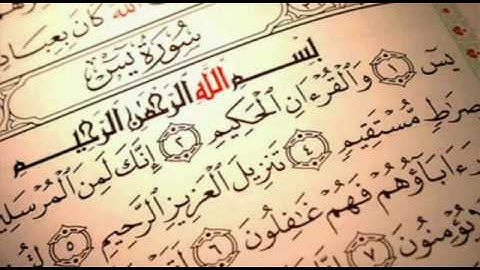 اللَّهَ كَانَ بِعِبَادِ
سُورَةُ يسٓ
بِسْمِ اللَّهِ الرَّحْمَٰنِ الرَّحِيمِ
يسٓ ١ وَٱلْقُرْءَانِ ٱلْحَكِيمِ ٢ إِنَّكَ لَمِنَ ٱلْمُرْسَلِي
صِرَٰطٍ مُّسْتَقِيمٍ ٤ تَنزِيلَ ٱلْعَزِيزِ ٱلرَّحِيمِ ٥
ءَابَآؤُهُمْ فَهُمْ غَٰفِلُونَ ٦
يُؤْمِنُونَ ٧